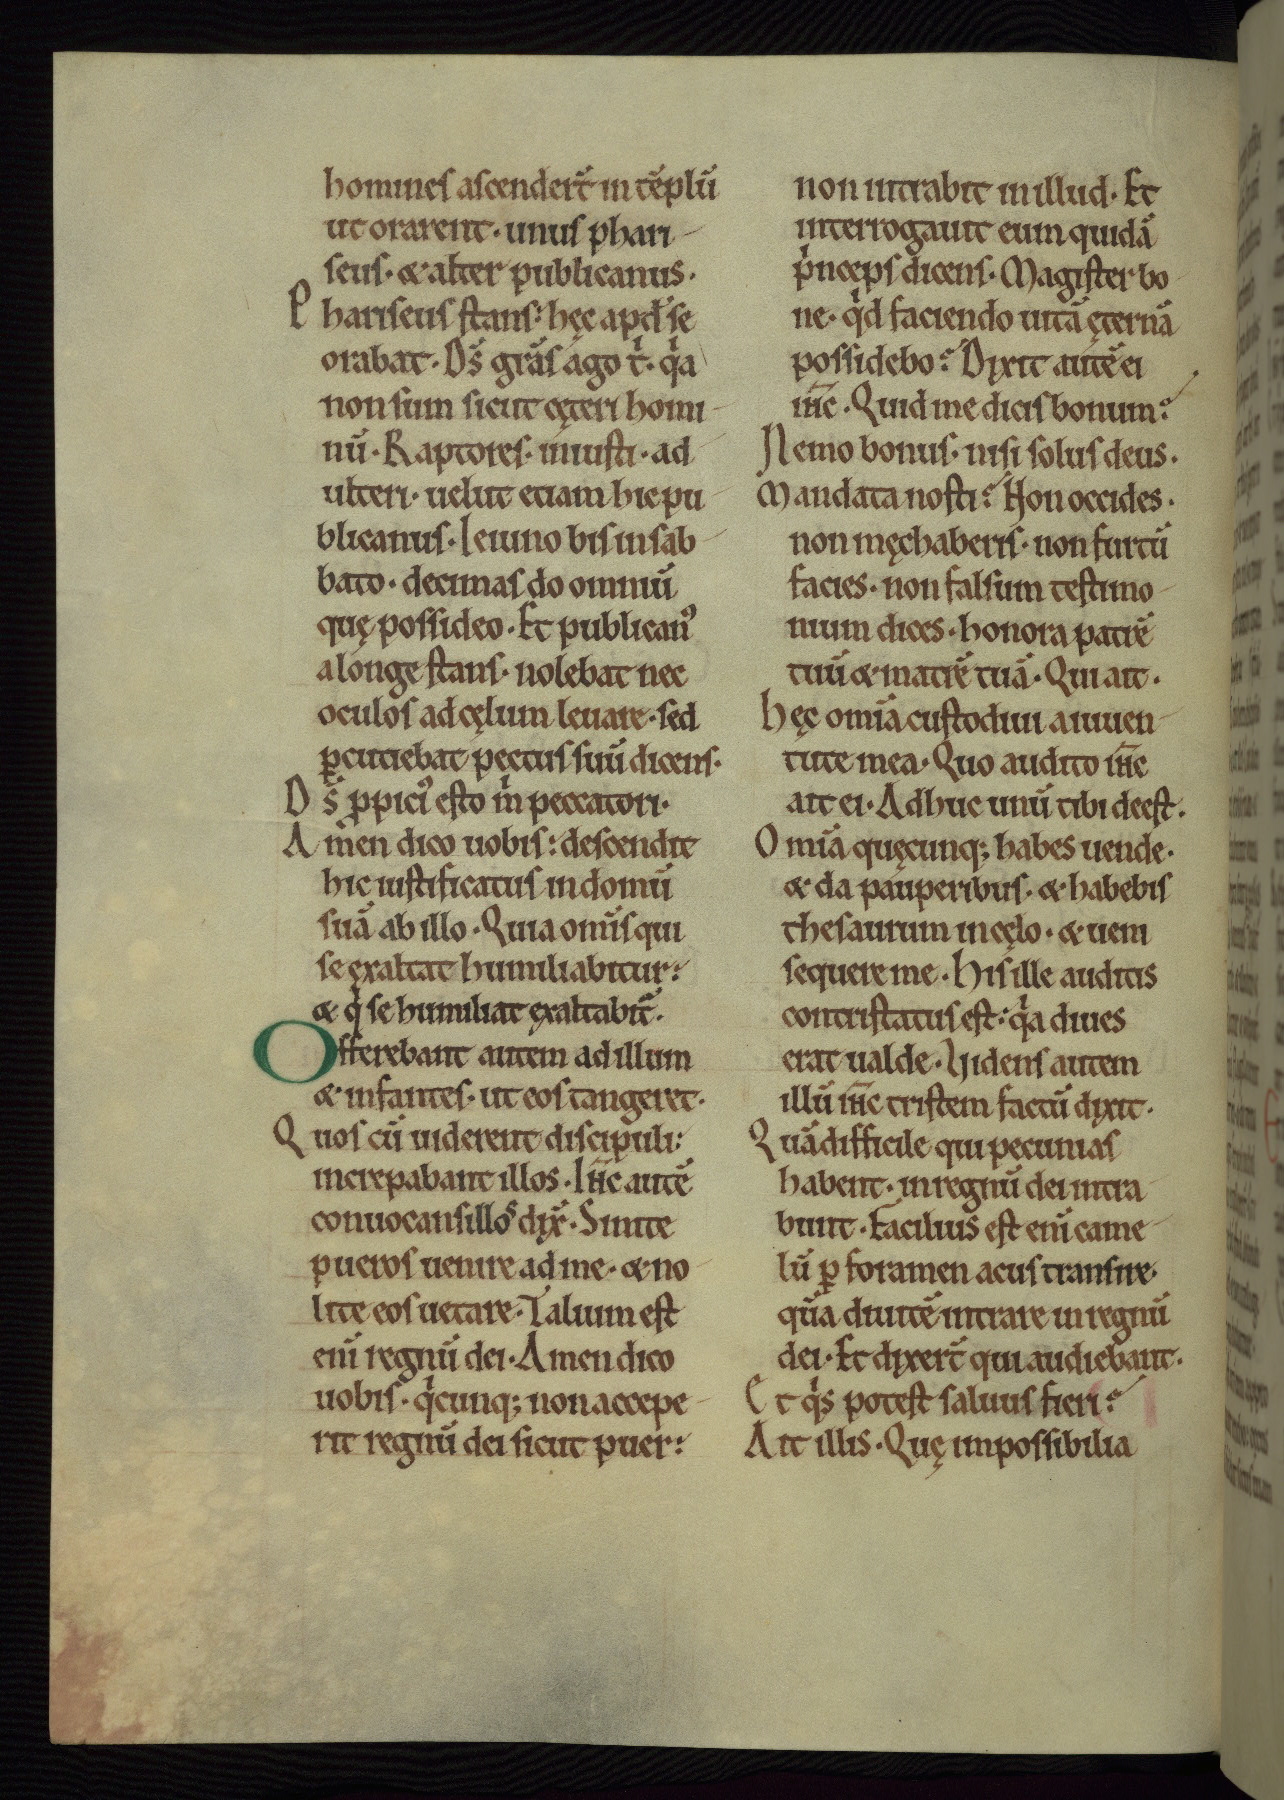 homines ascender̄t in tēplū
ut orarent· unus phari-
seus· & alter publicanus·
Phariseus stans: hęc apd' se
orabat· D̄s gr̄as ago t̍· qͥa
non sum sicut cęteri homi-
nū· Raptores· iniusti· ad-
ulteri· uelut etiam hic pu-
blicanus· Ieiuno bis in sab-
bato· decimas do omniū
quę possideo· Et publicanꝰ
a longe stans· nolebat nec
oculos ad cęlum leuare· sed
ꝑcutiebat pectus suū dicens·
D̄s ꝓpiciꝰ esto m̍ peccatori·
Amen dico uobis: descendit
hic iustificatus in domū
suā ab illo· Quia om̄s qui
se exaltat humiliabitur:
& qͥ se humiliat exaltabit̄·
Offerebant autem ad illum
& infantes· ut eos tangeret·
Quos cū uiderent discipuli:
increpabant illos· Iħc autē
conuocans illos dix̄· Sinite
pueros uenire ad me· & no-
lite eos uetare· Talium est
eni̅ regnū dei· Amen dico
uobis· qͥcunq; non accepe-
rit regnū dei sicut puer:
non intrabit in illud· Et
interrogauit eum quidā
pͥnceps dicens· Magister bo-
ne· qͥd faciendo uitā ęternā
possidebo? Dixit autē ei
iħc· Quid me dicis bonum?
Nemo bonus· nisi solus deus·
Mandata nosti? Non occides·
non męchaberis· non furtū
facies· non falsum testimo-
nium dices· honora patrē
tuū & matrē tuā· Qui ait·
Hęc om̄ia custodiui a iuuen-
tute mea· Quo audito iħc
ait ei· Adhuc unū tibi deest·
Om̄ia quęcunq; habes uende·
& da pauperibus· & habebis
thesaurum in cęlo· & ueni
sequere me· His ille auditis
contristatus est: qͥa diues
erat ualde· Uidens autem
illū iħc tristem factū dixit·
Quā difficile qui pecunias
habent· in regnū dei intra-
bunt· Facilius est eni̅ came-
lū ꝑ foramen acus transire·
quā diuitē intrare in regnū
dei· Et dixer̄t qui audiebant·
Et qͥs potest saluus fieri?
Ait illis· Quę impossibilia